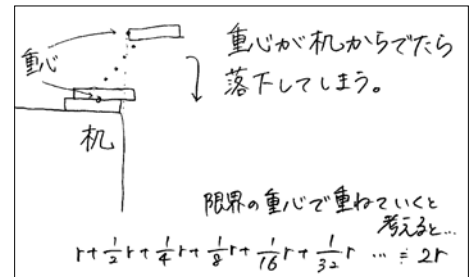 重心
重心が机からでたら
落下してしまう。
机
限界の重心で重ねていくと
考えると…
r+1/2r+1/4r+1/8r+1/16r+1/32r … ≒ 2r